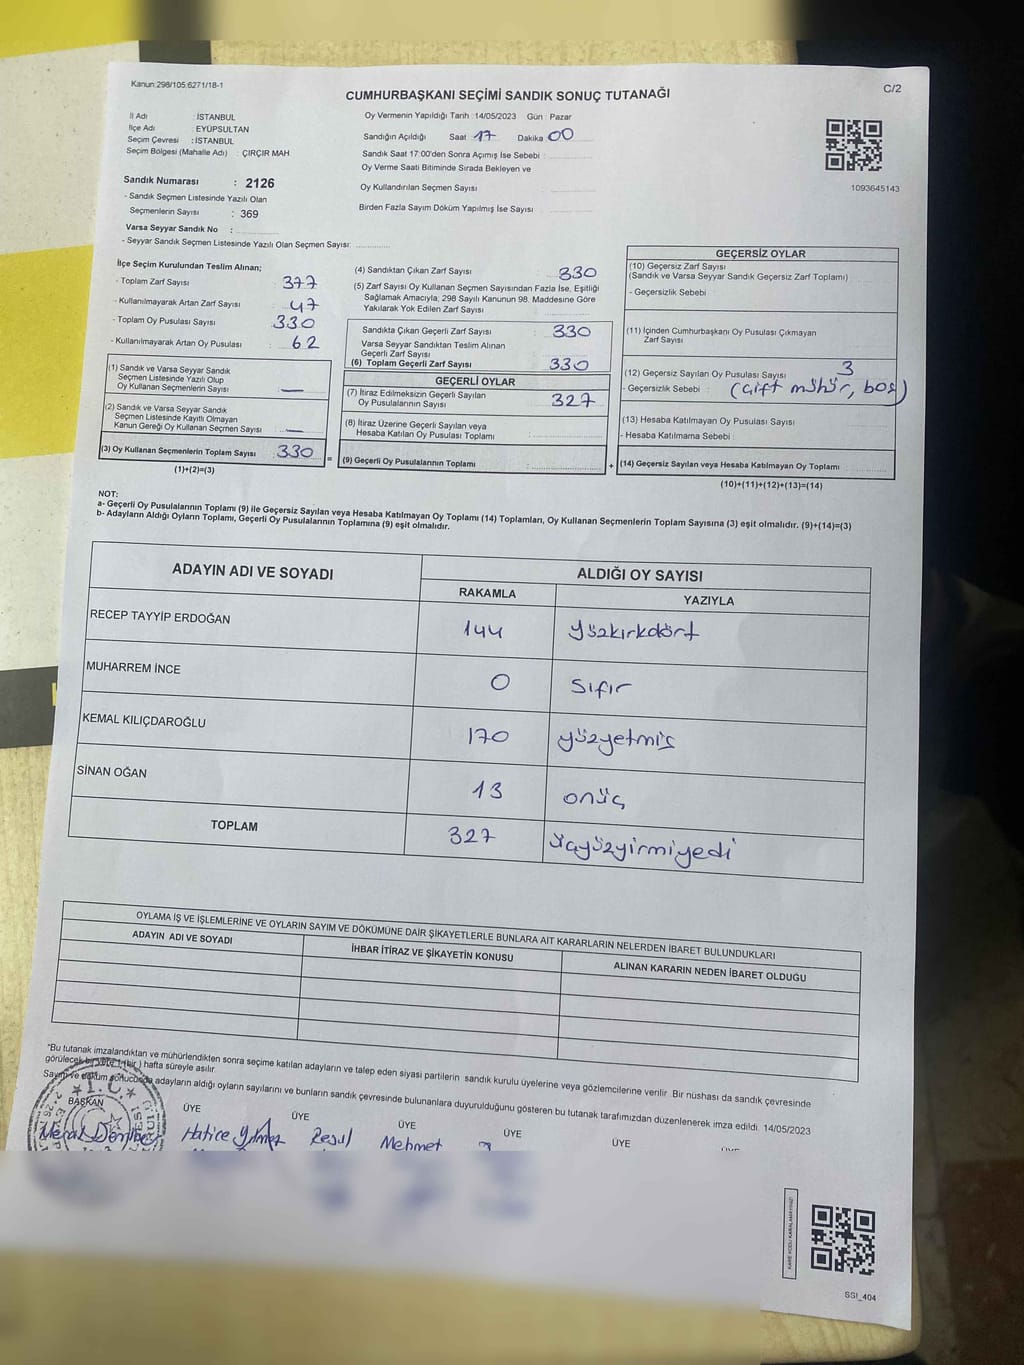 Kanun:298/105.6271/18-1
C/2
CUMHURBAŞKANI SEÇİMİ SANDIK SONUÇ TUTANAĞI
İl Adı : İSTANBUL
İlçe Adı : EYÜPSULTAN
Seçim Çevresi : İSTANBUL
Seçim Bölgesi (Mahalle Adı) : ÇIRÇIR MAH.
Oy Vermenin Yapıldığı Tarih : 14/05/2023 Gün : Pazar
Sandığın Açıldığı Saat : 17 Dakika : 00
Sandık Saat 17:00'den Sonra Açımış İse Sebebi :
Oy Verme Saati Bitiminde Sırada Bekleyen ve
Oy Kullandırılan Seçmen Sayısı
Birden Fazla Sayım Döküm Yapılmış İse Sayısı :
1093645143
Sandık Numarası : 2126
- Sandık Seçmen Listesinde Yazılı Olan
Seçmenlerin Sayısı : 369
Varsa Seyyar Sandık No :
- Seyyar Sandık Seçmen Listesinde Yazılı Olan Seçmen Sayısı:
İlçe Seçim Kurulundan Teslim Alınan;
- Toplam Zarf Sayısı : 377
- Kullanılmayarak Artan Zarf Sayısı : 47
- Toplam Oy Pusulası Sayısı : 330
- Kullanılmayarak Artan Oy Pusulası : 62
(1) Sandık ve Varsa Seyyar Sandık
Seçmen Listesinde Yazılı Olup
Oy Kullanan Seçmenlerin Sayısı : —
(2) Sandık ve Varsa Seyyar Sandık
Seçmen Listesinde Kayıtlı Olmayan
Kanun Gereği Oy Kullanan Seçmen Sayısı : —
(3) Oy Kullanan Seçmenlerin Toplam Sayısı : 330
(1)+(2)=(3)
(4) Sandıktan Çıkan Zarf Sayısı : 330
(5) Zarf Sayısı Oy Kullanan Seçmen Sayısından Fazla İse, Eşitliği
Sağlamak Amacıyla, 298 Sayılı Kanunun 98. Maddesine Göre
Yakılarak Yok Edilen Zarf Sayısı :
Sandıkta Çıkan Geçerli Zarf Sayısı : 330
Varsa Seyyar Sandıktan Teslim Alınan
Geçerli Zarf Sayısı
(6) Toplam Geçerli Zarf Sayısı : 330
GEÇERLİ OYLAR
(7) İtiraz Edilmeksizin Geçerli Sayılan
Oy Pusulalarının Sayısı : 327
(8) İtiraz Üzerine Geçerli Sayılan veya
Hesaba Katılan Oy Pusulası Toplamı :
= (9) Geçerli Oy Pusulalarının Toplamı :
GEÇERSİZ OYLAR
(10) Geçersiz Zarf Sayısı
(Sandık ve Varsa Seyyar Sandık Geçersiz Zarf Toplamı)
- Geçersizlik Sebebi :
(11) İçinden Cumhurbaşkanı Oy Pusulası Çıkmayan
Zarf Sayısı
(12) Geçersiz Sayılan Oy Pusulası Sayısı : 3
- Geçersizlik Sebebi : (çift mühür, boş)
(13) Hesaba Katılmayan Oy Pusulası Sayısı :
- Hesaba Katılmama Sebebi :
+ (14) Geçersiz Sayılan veya Hesaba Katılmayan Oy Toplamı :
(10)+(11)+(12)+(13)=(14)
NOT:
a- Geçerli Oy Pusulalarının Toplamı (9) ile Geçersiz Sayılan veya Hesaba Katılmayan Oy Toplamı (14) Toplamları, Oy Kullanan Seçmenlerin Toplam Sayısına (3) eşit olmalıdır. (9)+(14)=(3)
b- Adayların Aldığı Oyların Toplamı, Geçerli Oy Pusulalarının Toplamına (9) eşit olmalıdır.
ADAYIN ADI VE SOYADI ALDIĞI OY SAYISI
RAKAMLA YAZIYLA
RECEP TAYYİP ERDOĞAN 144 yüzkırkdört
MUHARREM İNCE 0 sıfır
KEMAL KILIÇDAROĞLU 170 yüzyetmiş
SİNAN OĞAN 13 onüç
TOPLAM 327 üçyüzyirmiyedi
OYLAMA İŞ VE İŞLEMLERİNE VE OYLARIN SAYIM VE DÖKÜMÜNE DAİR ŞİKAYETLERLE BUNLARA AİT KARARLARIN NELERDEN İBARET BULUNDUKLARI
ADAYIN ADI VE SOYADI İHBAR İTİRAZ VE ŞİKAYETİN KONUSU ALINAN KARARIN NEDEN İBARET OLDUĞU
"Bu tutanak imzalandıktan ve mühürlendikten sonra seçime katılan adayların ve talep eden siyasi partilerin sandık kurulu üyelerine veya gözlemcilerine verilir. Bir nüshası da sandık çevresinde
görülecek bir yere 1 (bir) hafta süreyle asılır.
Sayım ve döküm sonucunda adayların aldığı oyların sayılarını ve bunların sandık çevresinde bulunanlara duyurulduğunu gösteren bu tutanak tarafımızdan düzenlenerek imza edildi. 14/05/2023
T.C.
BAŞKAN ÜYE ÜYE ÜYE ÜYE ÜYE
Hatice Yılmaz Resul Mehmet
KARE KODU KARALAMAYINIZ!
SSI_404